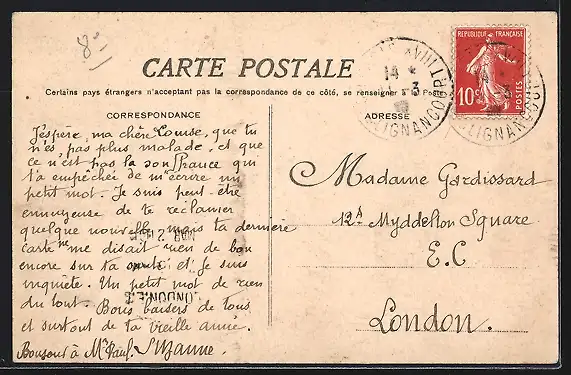 8
CARTE POSTALE
Certains pays étrangers n'acceptant pas la correspondance de ce côté, se renseigner à la Poste
CORRESPONDANCE
ADRESSE
REPUBLIQUE FRANÇAISE
10c
POSTES
PARIS XVIII
14 *
3
R. CLIGNANCOURT
J'espère, ma chère Louise, que tu
n'es pas plus malade, et que
ce n'est pas la souffrance qui
t'a empêchée de m'écrire un
petit mot. Je suis peut-être
ennuyeuse de te réclamer
quelque nouvelle, mais ta dernière
carte me disait rien de bon
encore sur ta santé et je suis
inquiète. Un petit mot de rien
du tout. Bons baisers de tous
et surtout de ta vieille amie.
Bonsoir à Mr Paul. Suzanne.
LONDON.E.C
Madame Gardissard
12A Myddelton Square
E.C
London.